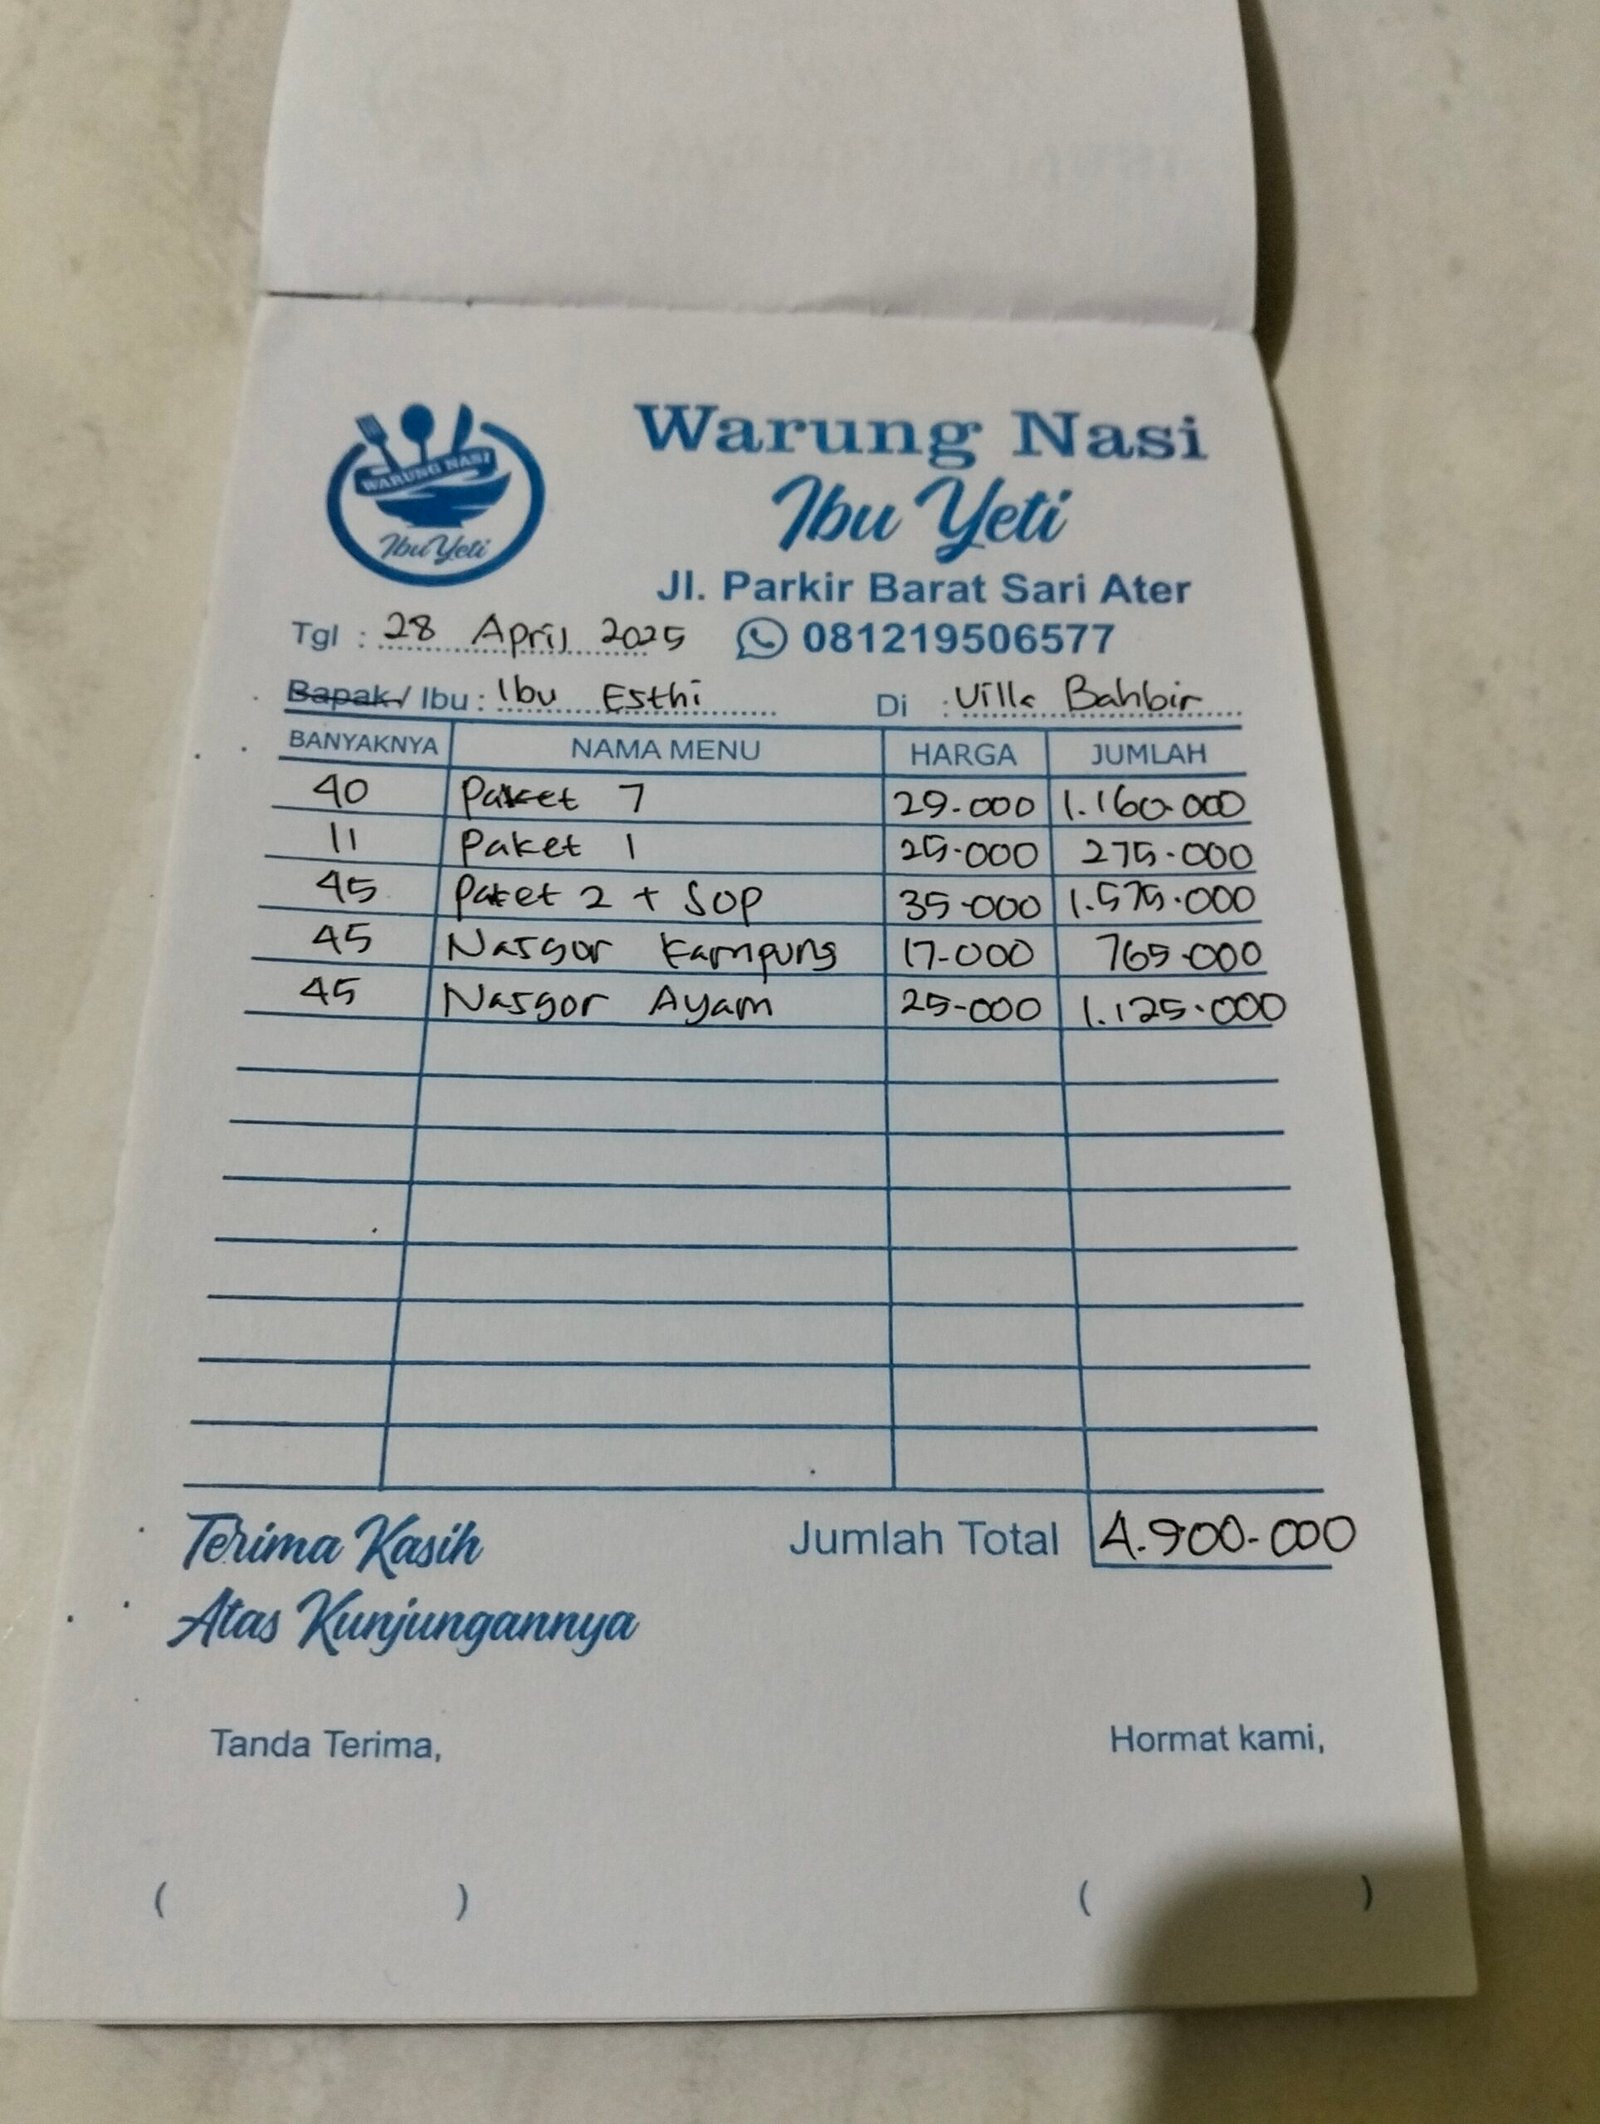 WARUNG NASI
Ibu Yeti
Warung Nasi
Ibu Yeti
Jl. Parkir Barat Sari Ater
Tgl : 28 April 2025 081219506577
Bapak / Ibu : Ibu Esthi Di : Villa Bahbir
BANYAKNYA NAMA MENU HARGA JUMLAH
40 Paket 7 29.000 1.160.000
11 Paket 1 25.000 275.000
45 Paket 2 + SOP 35.000 1.575.000
45 Nasgor Kampung 17.000 765.000
45 Nasgor Ayam 25.000 1.125.000
Terima Kasih Jumlah Total 4.900.000
Atas Kunjungannya
Tanda Terima, Hormat kami,
( ) ( )